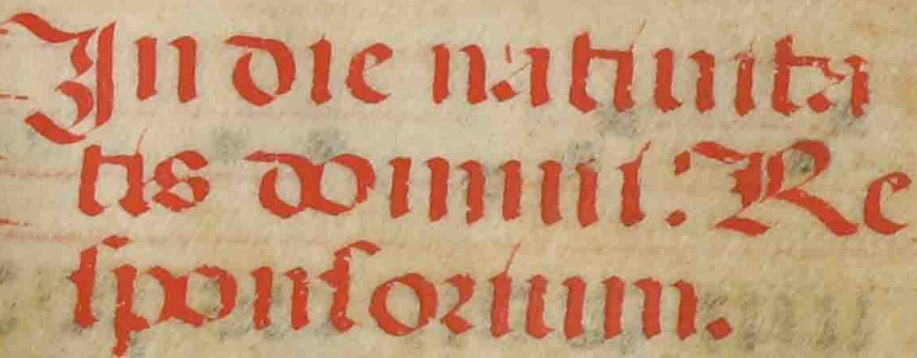 In die natiuita
tis domini: Re
sponsorium.